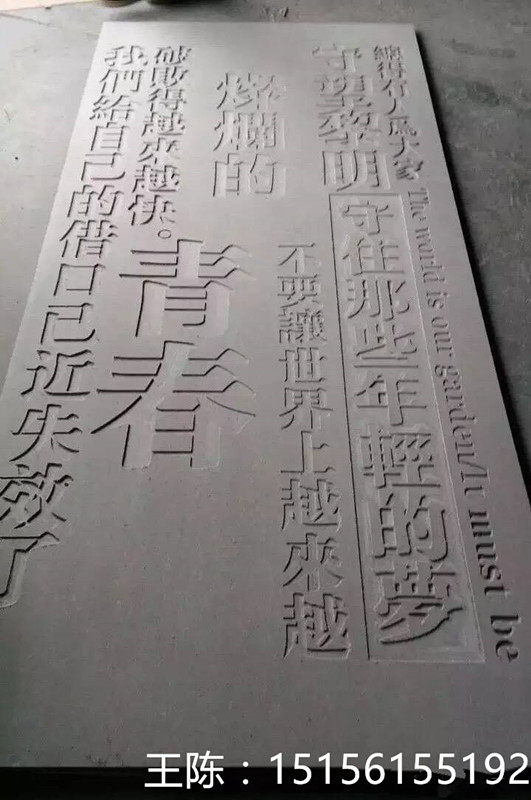 總得有人為大家
守望黎明
The world is our garden/It must be
守住那些年輕的夢
不要讓世界上越來越
燦爛的
青春
破敗得越來越快。
我們給自己的借口已近失效了
王陈：15156155192